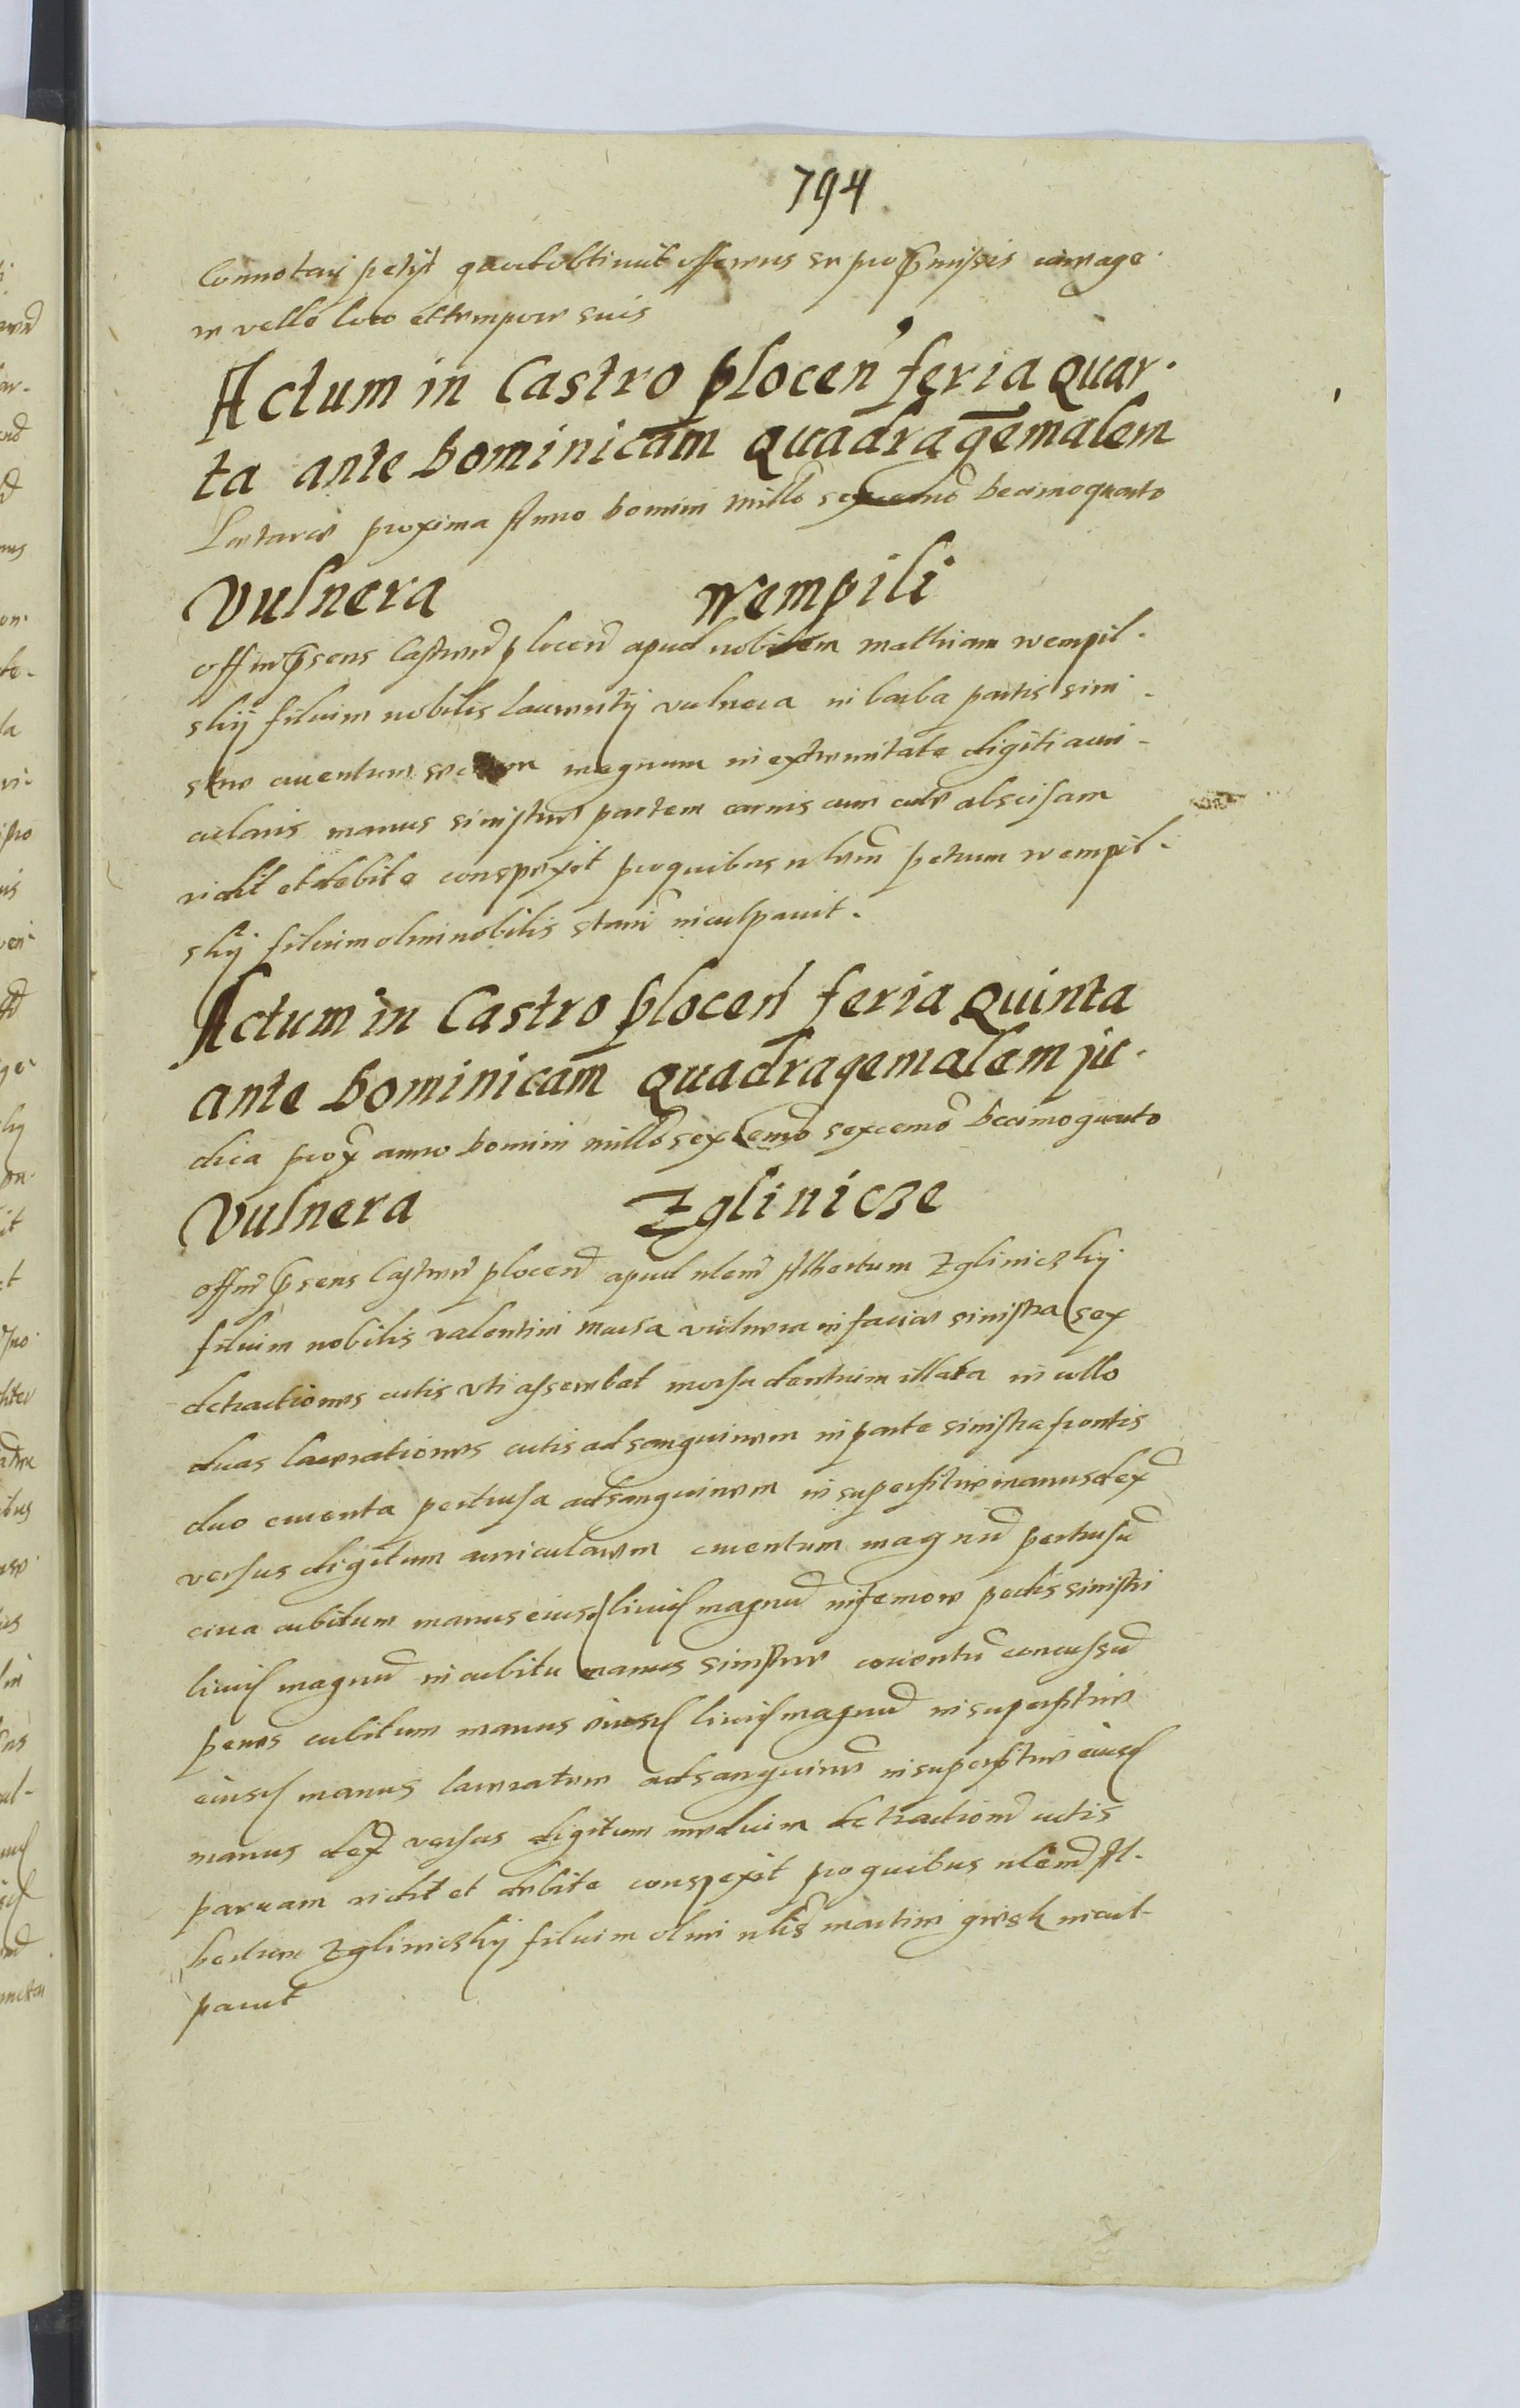 794
Connotari petyt quod obtinuit offerens se pro p̃missis iure age.
re velle loco et tempore suis
Actum in Castro plocen̄ feria Quar.
ta ante Dominicam Quadrage͠malem
Laetare proxima Anno Domini Millo sexcemo Decimoquarto
Vulnera Wempili
Offm p̃sens Castren̄ plocen̄ apud nobilem Mathiam Wempil.
skij filium nobilis Laurentij vulnera in barba partis sini.
stre cruentum magnum in extremitate digiti auri.
cularis manus sinistre partem carnis cum cute abscisam
vidit et debite conspexit pro quibus nlem̄ petrum Wempil.
skij filium olim nobilis stani inculpavit.
Actum in Castro plocen̄ feria Quinta
ante Dominicam Quadragemalem ju.
dica prox̄ anno Domini millo sexcemo sexcemo Decimoquarto
Vulnera Zglinicze
Offm p̃sens Castren̄ plocen̄ apud nlem̄ Albertum Zgliniczkij
filium nobilis valentini vulnera in facie sinistra sex
detractiones cutis vti asserebat morsu dentium illata in collo
duas lacerationes cutis ad sanguinem in parte sinistra frontis
duo cruenta pertusa ad sanguinem in superficie manus dex̄
versus digitum auricularem cruentum magnū pertusū
circa cubitum manus eiusd livid magnū in femore pedis sinistri
livid magnū in cubitu manus sinistre cruentū concussū
penes cubitum manus eiusd livid magnū in superficie
eiusd manus laceratum ad sanguinē in superficie eiusd
manus dex̄ versus digitum medium detractionē cutis
parvam vidit et debite conspexit pro quibus nlem̄ Al.
bertum Zgliniczkij filium olim nlis martini incul-
pavit